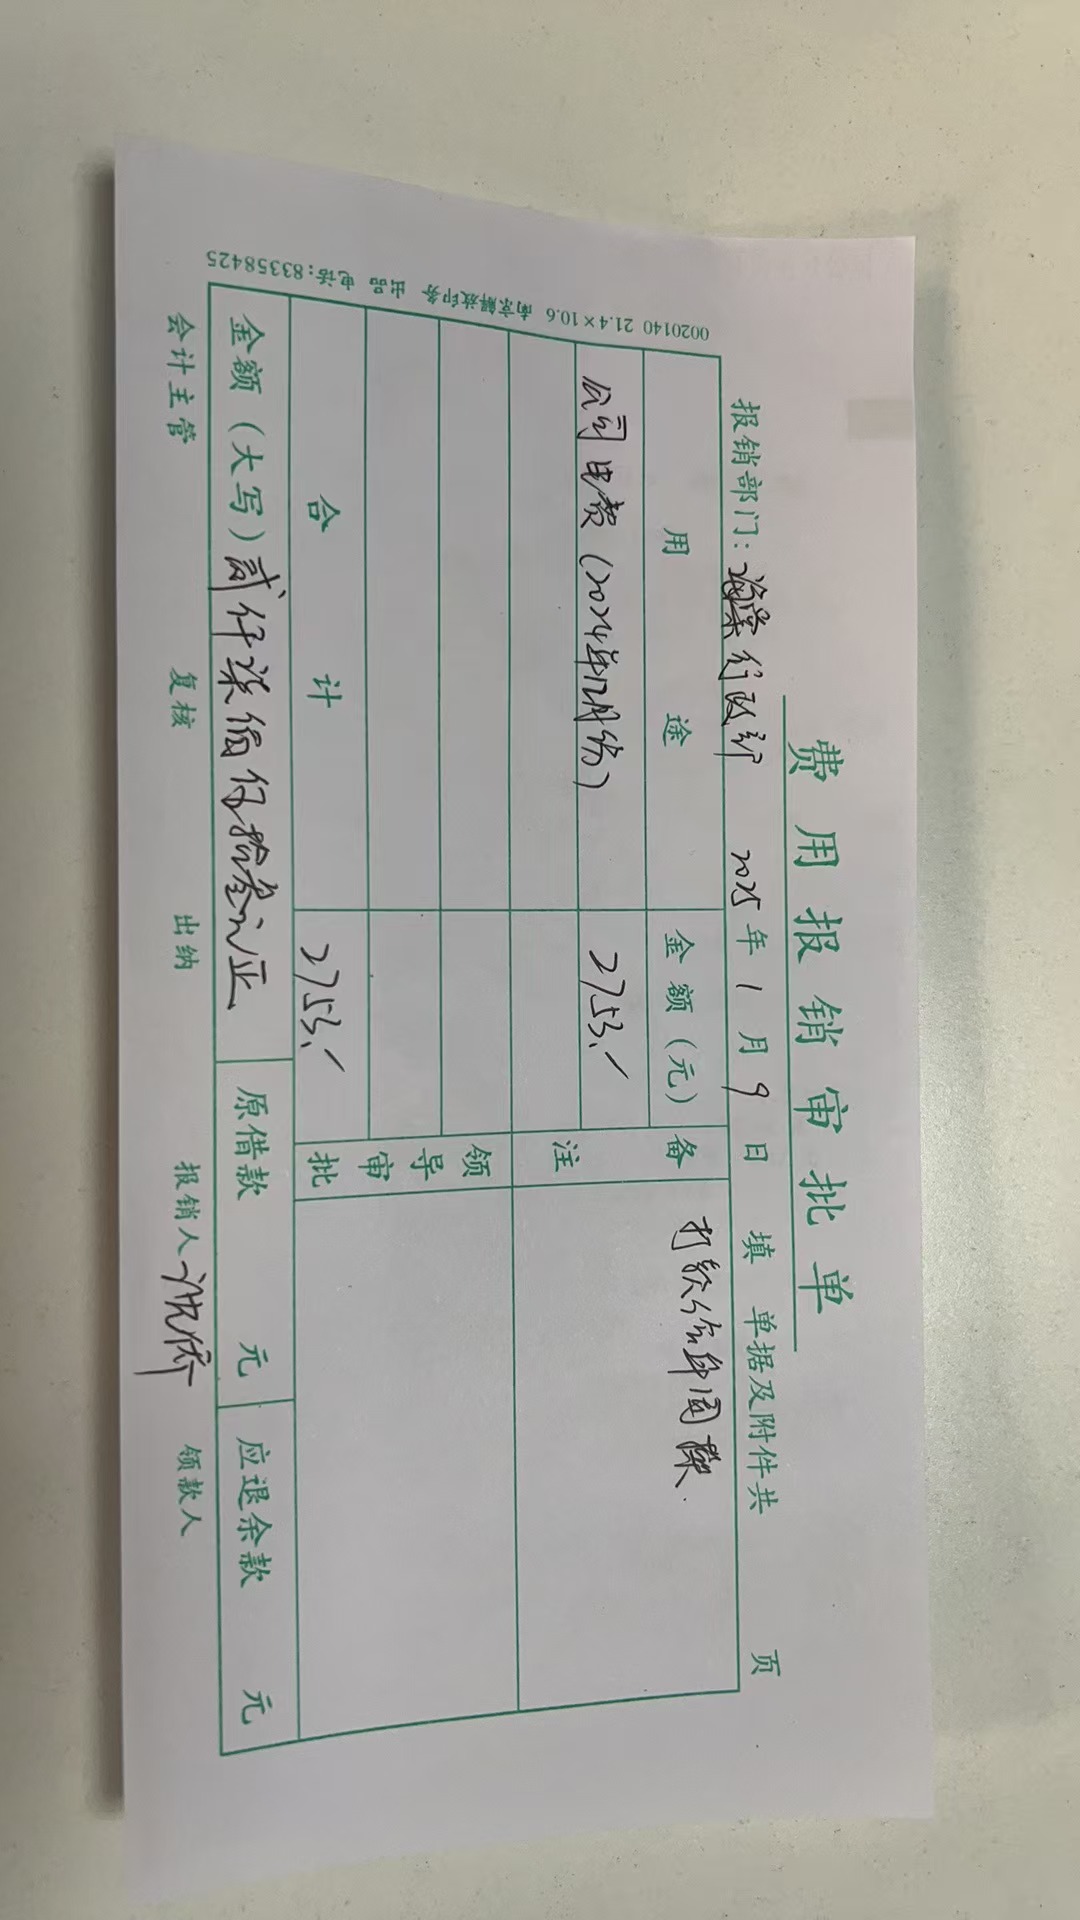 费用报销审批单
报销部门: 海棠行政部 2025年1月9日填 单据及附件共 页
用途 金额(元) 备注
公司电费(2024年12月份) 2753.- 打款给
合计 2753.- 领导审批
金额(大写)贰仟柒佰伍拾叁元正 原借款 元 应退余款 元
会计主管 复核 出纳 报销人 领款人
0020140 21.4×10.6 南京解放印务 出品 电话:83358425